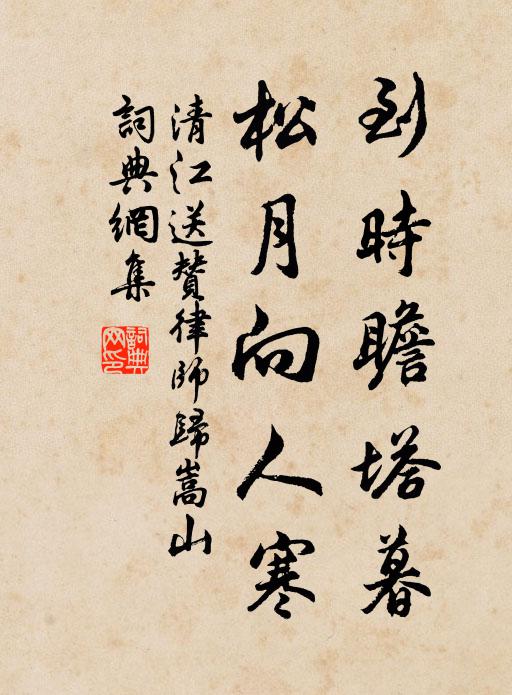 到時瞻塔暮
松月向人寒
清江送贊律師歸嵩山
詞典網集
詞典網印